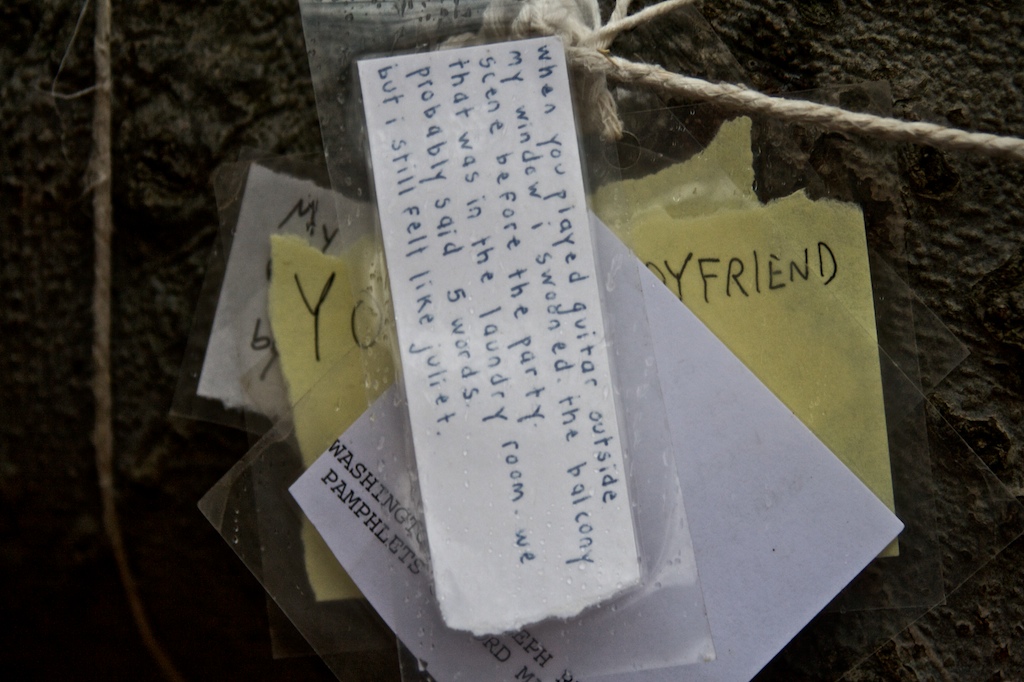 when you played guitar outside
my window i swooned. the balcony
scene before the party.
that was in the laundry room. we
probably said 5 words.
but i still felt like juliet.
My
by
YO
OYFRIEND
WASHINGTO
PAMPHLETS
EPH
RD